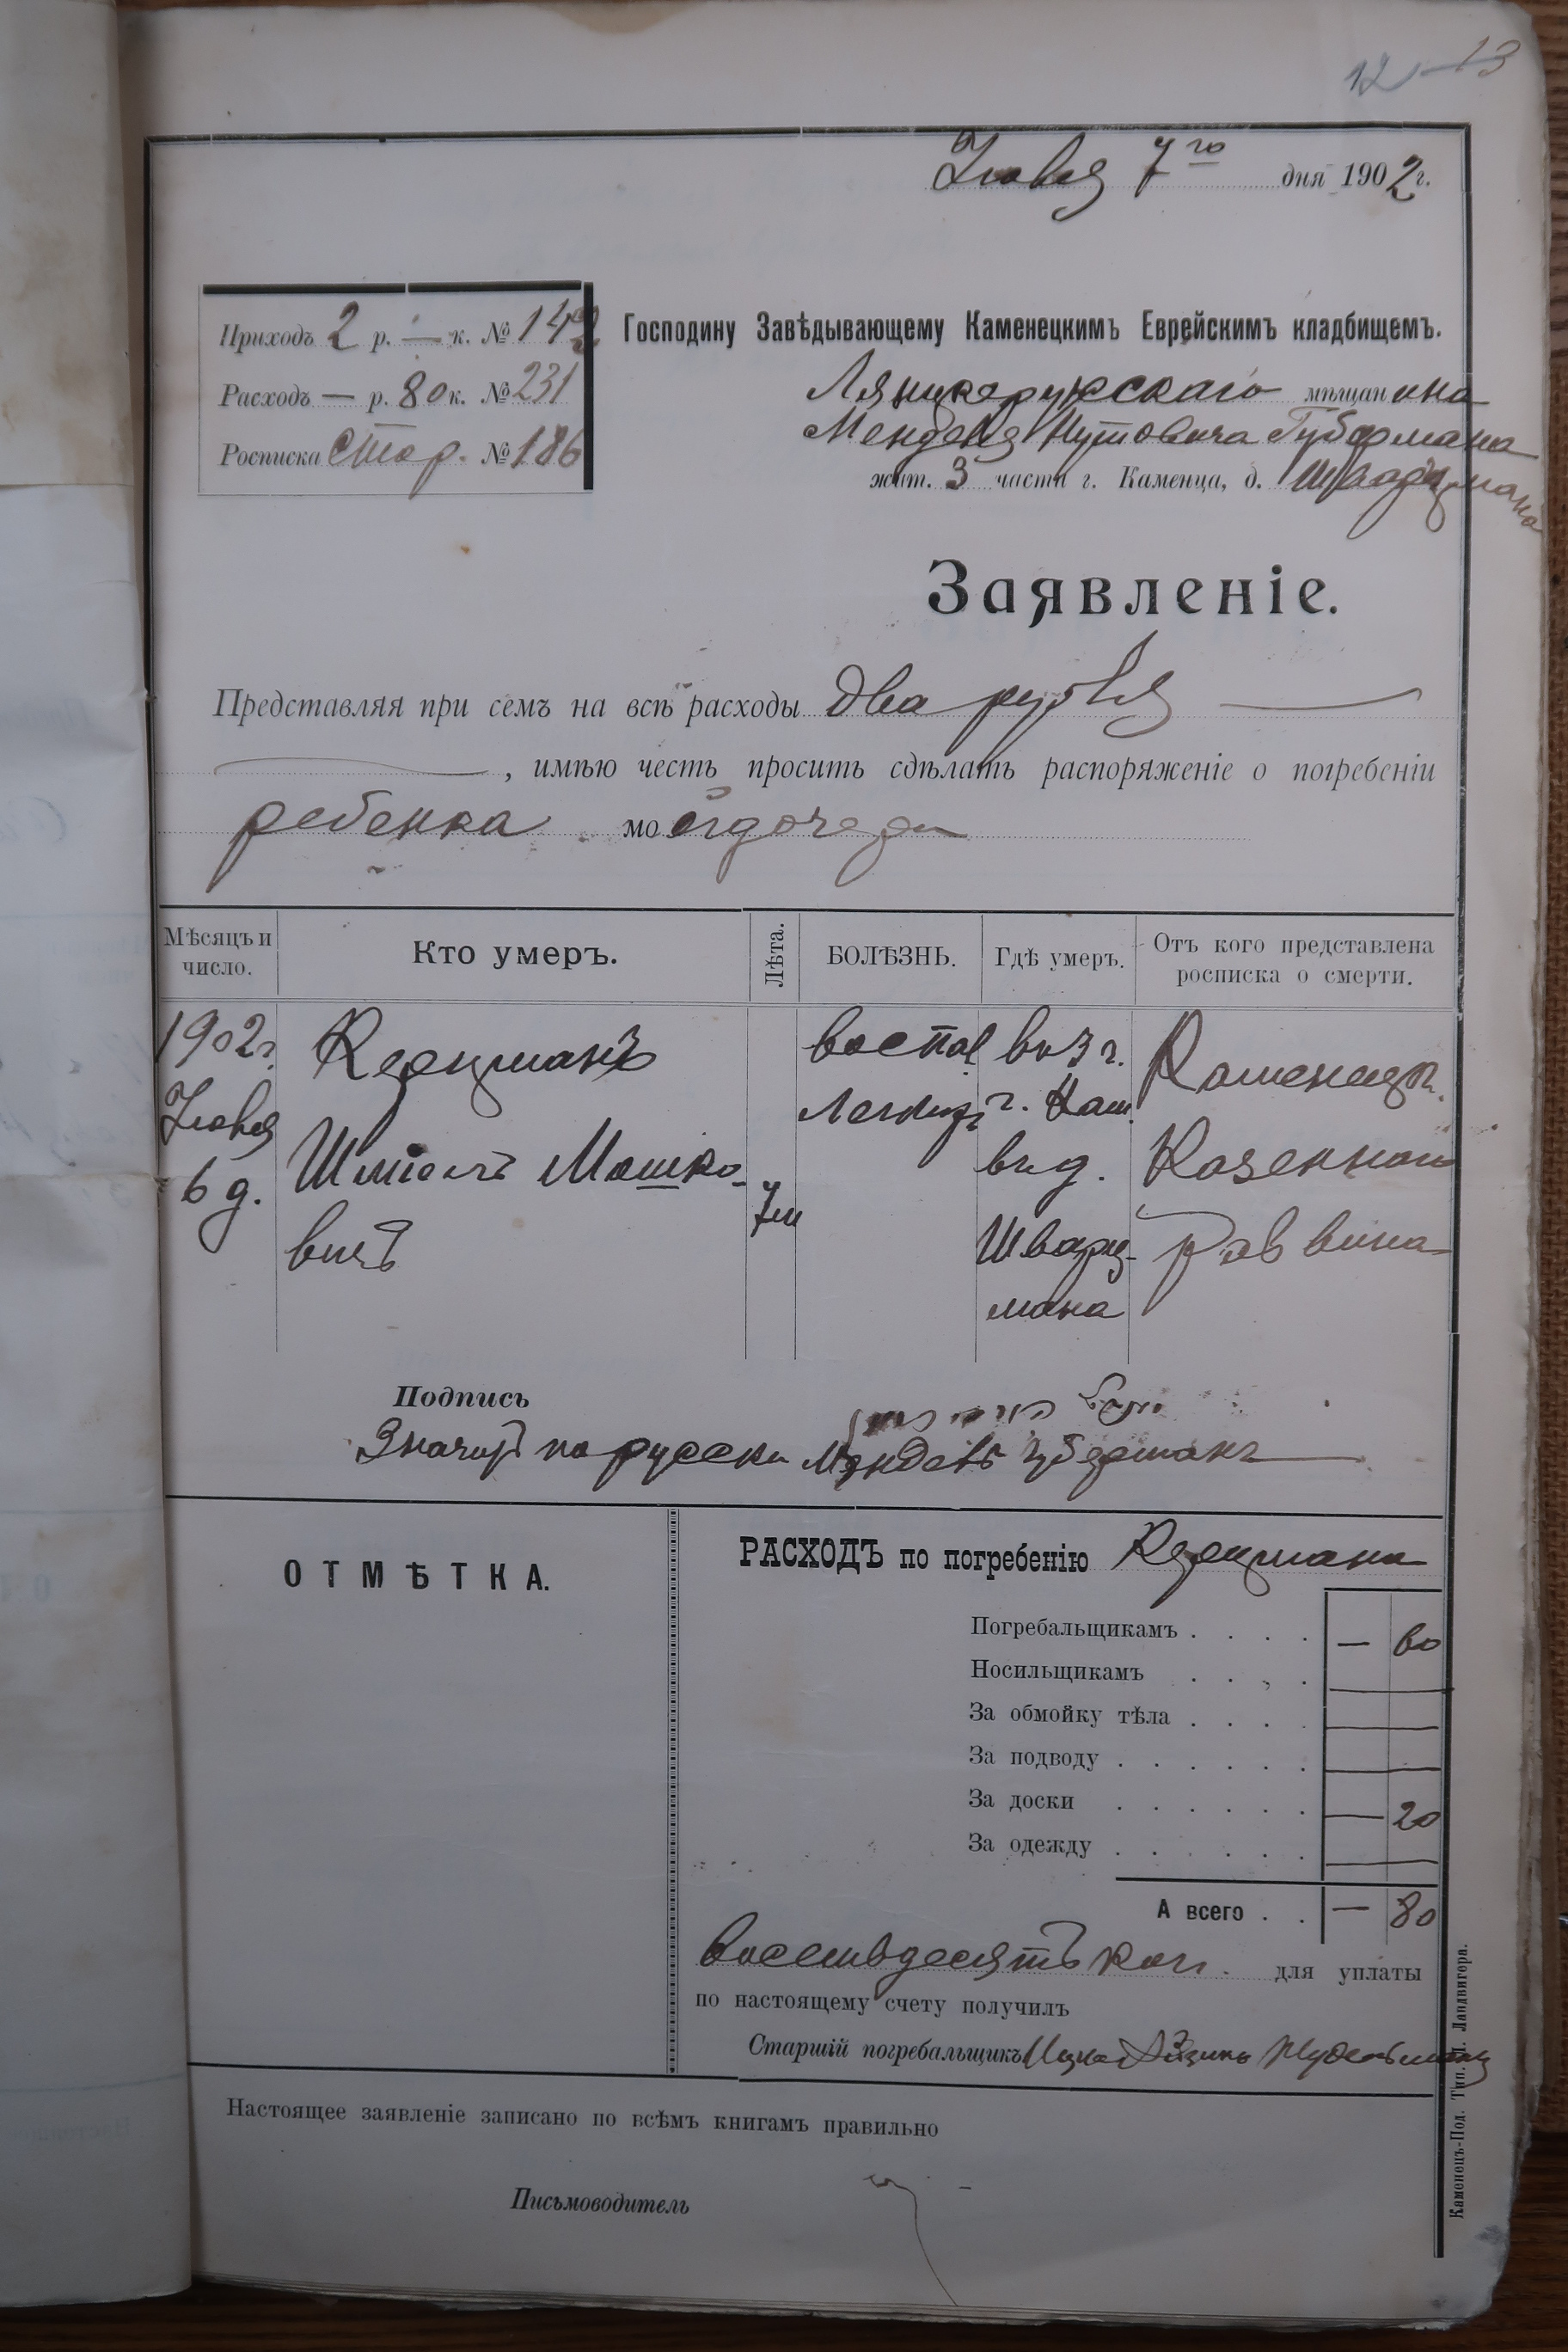 12 13
Іюля 7го дня 1902 г.
Приходъ 2 р. — к. № 142
Расходъ — р. 80 к. № 231
Росписка стар. № 186
Господину Завѣдывающему Каменецкимъ Еврейскимъ кладбищемъ.
Лянцкорунскаго мѣщанина
Менделя Нутовича Губермана
жит. 3 части г. Каменца, д. Шварцмана
Заявленіе.
Представляя при семъ на всѣ расходы два рубля —
—, имѣю честь просить сдѣлать распоряженіе о погребеніи
ребенка моей дочери
Мѣсяцъ и число.
Кто умеръ.
Лѣта.
БОЛѢЗНЬ.
Гдѣ умеръ.
Отъ кого представлена росписка о смерти.
1902 г.
Іюля
6 д.
Керцманъ
Шмielъ Мошко-
вичъ
7 м
воспал
легкихъ
въ 3 ч.
г. Кам.
въ д.
Шварц-
мана
Каменецк.
Казеннаго
раввина
Подпись
Значитъ по русски Мендель Губерманъ
ОТМѢТКА.
РАСХОДЪ по погребенію Керцмана
Погребальщикамъ . . . . — 60
Носильщикамъ . . , . —
За обмойку тѣла . . . . —
За подводу . . . . . . —
За доски . . . . . . — 20
За одежду . . . . . . —
А всего . . — 80
восемьдесятъ коп. для уплаты
по настоящему счету получилъ
Старшій погребальщикъ Ицко Айзикъ Нудельманъ
Настоящее заявленіе записано по всѣмъ книгамъ правильно
Письмоводитель
Каменецъ-Под. Тип. Л. Ландвигера.